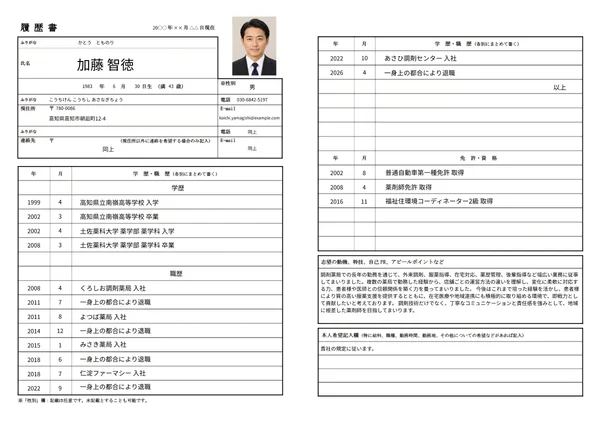 履歴書
20○○年××月△△日現在
ふりがな かとう とものり
氏名 加藤 智徳
1983 年 6 月 30 日生 (満 43 歳)
※性別
男
ふりがな こうちけん こうちし あさなぎちょう
電話 030-6842-5197
現住所 〒780-0066
高知県高知市朝凪町12-4
E-mail
koichi.yamagishi@example.com
ふりがな
電話 同上
連絡先 〒 (現住所以外に連絡を希望する場合のみ記入)
同上
E-mail
同上
年 月 学歴・職歴 (各別にまとめて書く)
学歴
1999 4 高知県立南嶺高等学校 入学
2002 3 高知県立南嶺高等学校 卒業
2002 4 土佐薬科大学 薬学部 薬学科 入学
2008 3 土佐薬科大学 薬学部 薬学科 卒業
職歴
2008 4 くろしお調剤薬局 入社
2011 7 一身上の都合により退職
2011 8 よつば薬局 入社
2014 12 一身上の都合により退職
2015 1 みさき薬局 入社
2018 6 一身上の都合により退職
2018 7 仁淀ファーマシー 入社
2022 9 一身上の都合により退職
※「性別」欄:記載は任意です。未記載とすることも可能です。
年 月 学歴・職歴 (各別にまとめて書く)
2022 10 あさひ調剤センター 入社
2026 4 一身上の都合により退職
以上
年 月 免許・資格
2002 8 普通自動車第一種免許 取得
2008 4 薬剤師免許 取得
2016 11 福祉住環境コーディネーター2級 取得
志望の動機、特技、自己PR、アピールポイントなど
調剤薬局での長年の勤務を通じて、外来調剤、服薬指導、在宅対応、薬歴管理、後輩指導など幅広い業務に従事
してまいりました。複数の薬局で勤務した経験から、店舗ごとの運営方法の違いを理解し、変化に柔軟に対応す
る力、患者様や医師との信頼関係を築く力を養ってまいりました。今後はこれまで培った経験を活かし、患者様
により質の高い服薬支援を提供するとともに、在宅医療や地域連携にも積極的に取り組める環境で、即戦力とし
て貢献したいと考えております。調剤技術だけでなく、丁寧なコミュニケーションと責任感を強みとして、地域
に根差した薬剤師を目指してまいります。
本人希望記入欄 (特に給料、職種、勤務時間、勤務地、その他についての希望などがあれば記入)
貴社の規定に従います。